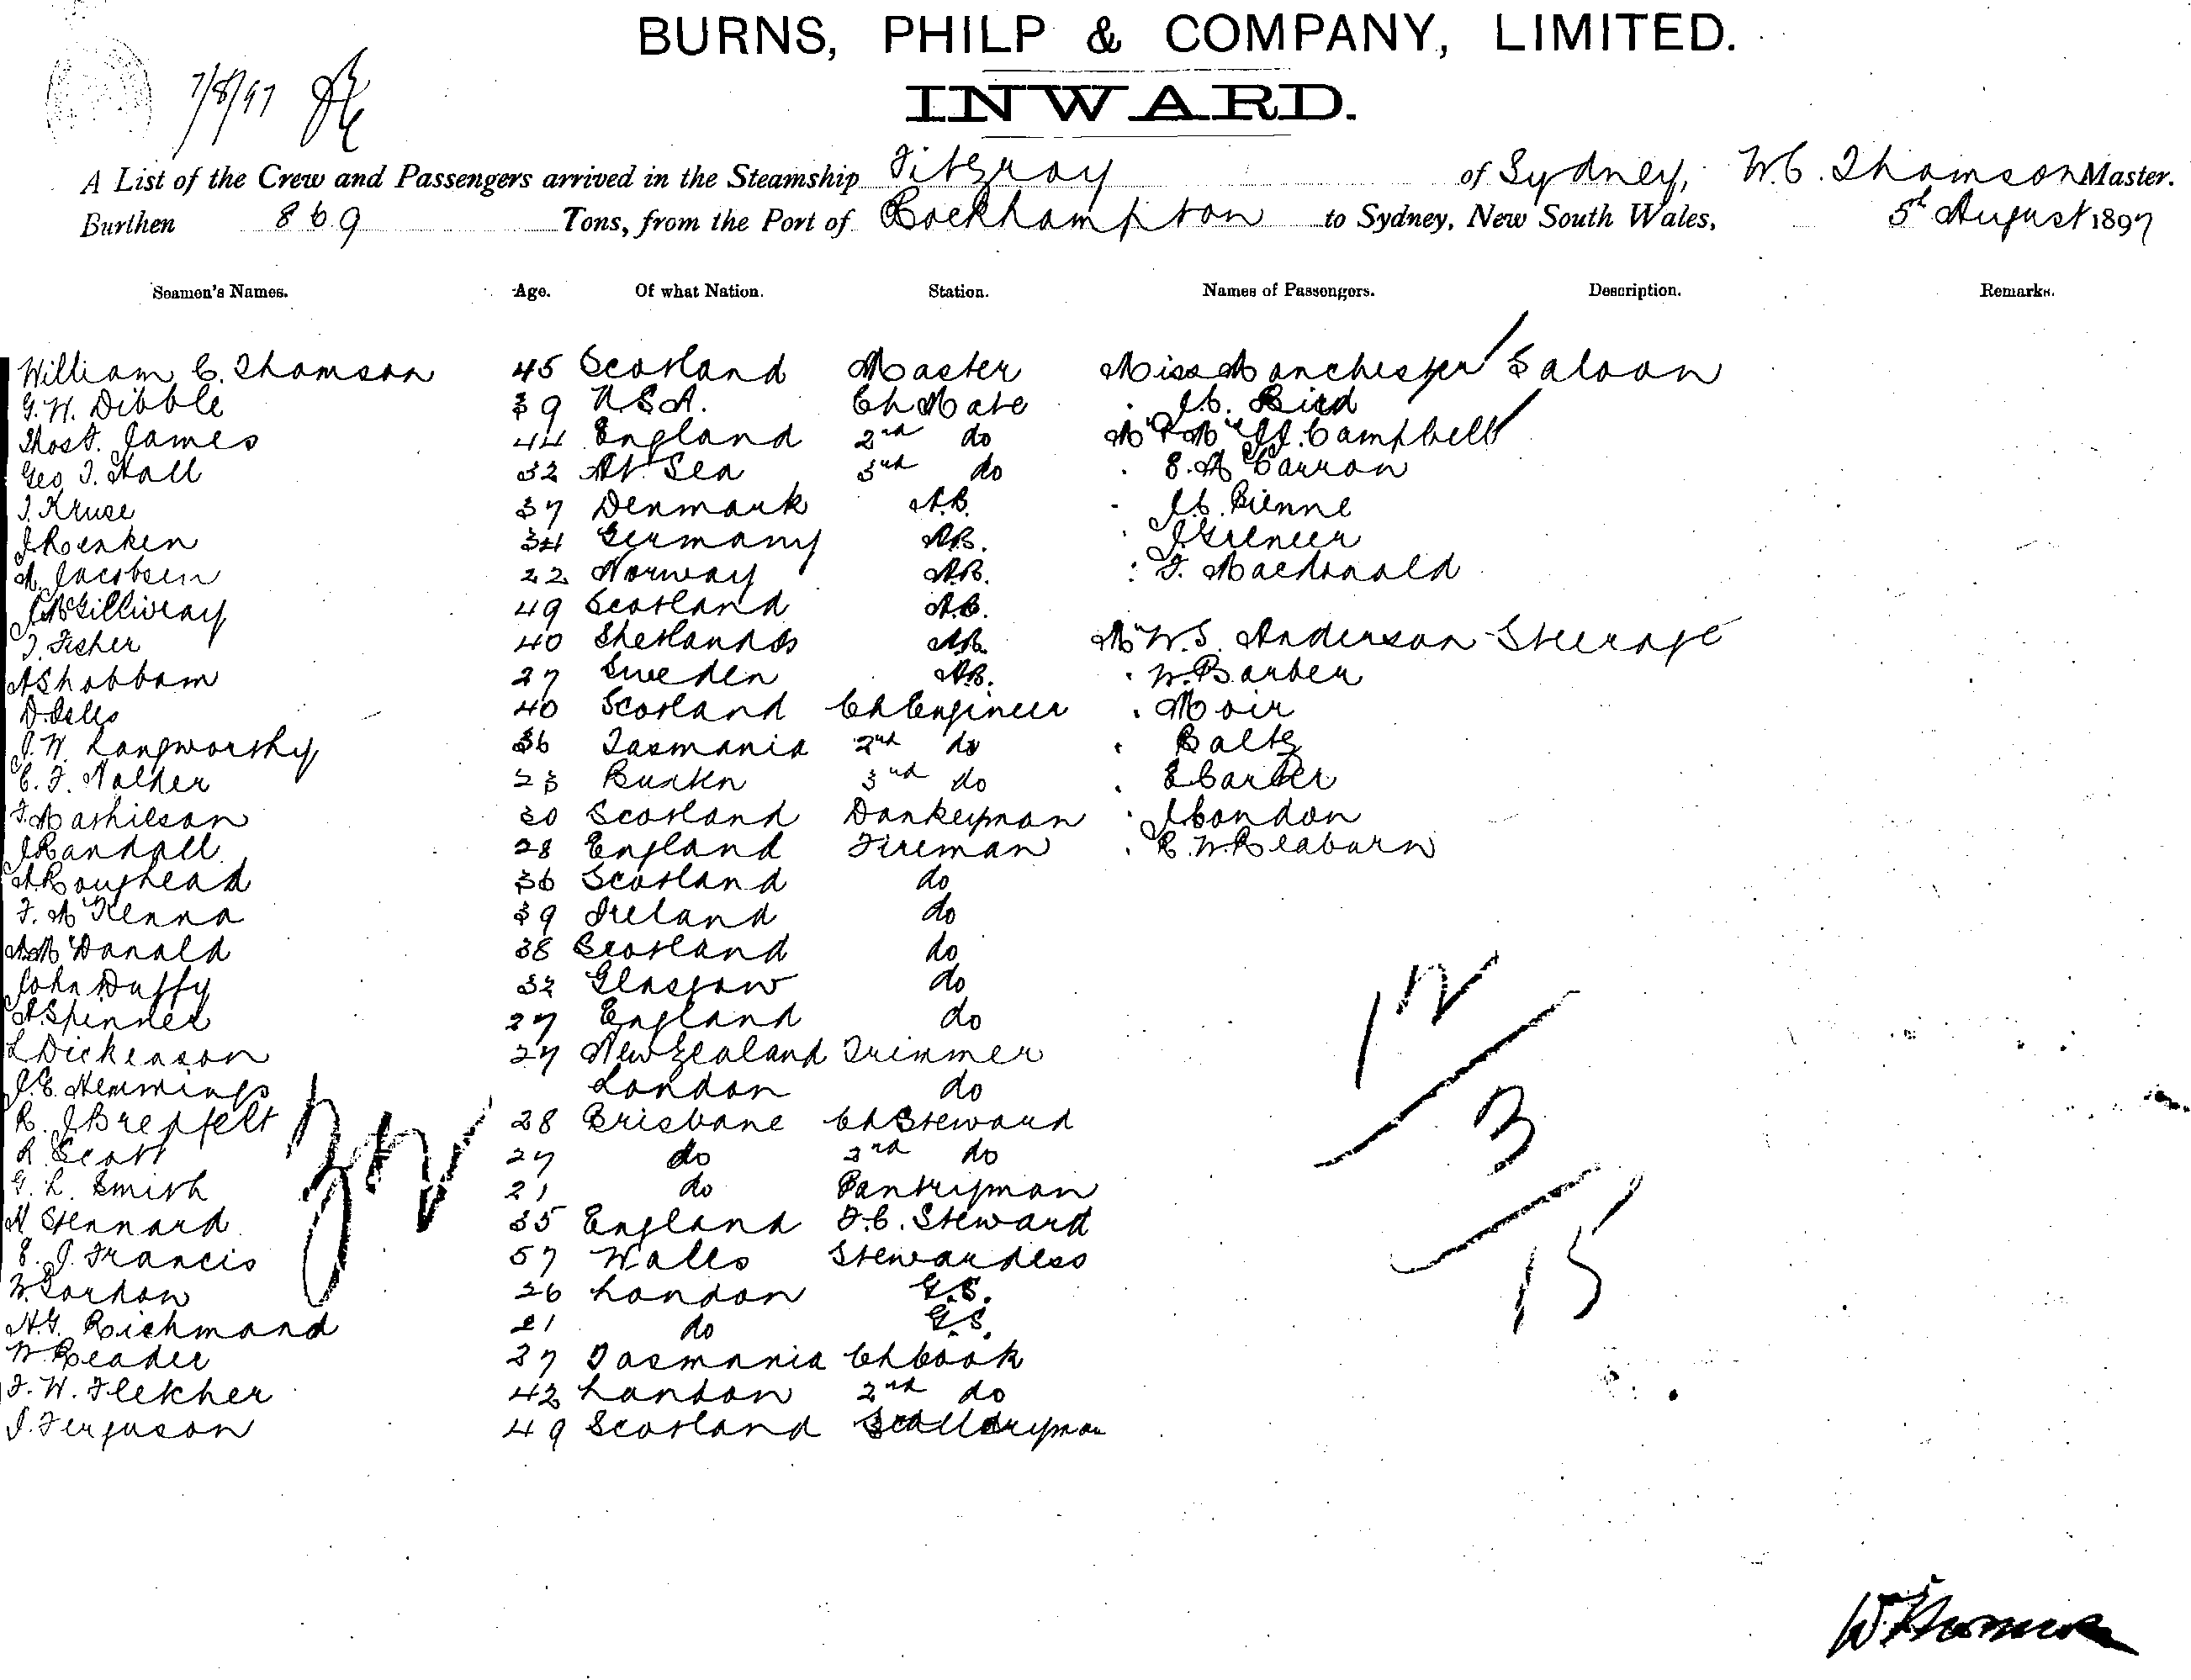 BURNS, PHILP & COMPANY, LIMITED.
7/8/97
INWARD.
A List of the Crew and Passengers arrived in the Steamship Fitzroy of Sydney, W.C. Thomson Master.
Burthen 869 Tons, from the Port of Rockhampton to Sydney, New South Wales, 5th August 1897
Seamen's Names. Age. Of what Nation. Station. Names of Passengers. Description. Remarks.
William C. Thomson 45 Scotland Master Miss Manchester Saloon
G.H. Dibble 39 U.S.A. Ch Mate " J.C. Bird
Thos F. James 44 England 2nd do Mr & Mrs Campbell
Geo T. Hall 32 At Sea 3rd do " E. Mc Carron
J. Kruse 37 Denmark A.B. " J.C. Pienne
J Renken 34 Germany A.B. "
A. Jacobsen 22 Norway A.B. " F. Macdonald
J McGillivray 49 Scotland A.B.
J. Fisher 40 Shetlands A.B. Mr W.S. Anderson Steerage
A Shobbam 27 Sweden A.B. " W. Barber
D. Eells 40 Scotland Ch Engineer " Moir
J.W. Langworthy 36 Tasmania 2nd do " Baltz
C.F. Walker 23 3rd do " E Carter
F. Mathieson 30 Scotland Donkeyman " J Condon
J Randall 28 England Fireman " R.W. Reaburn
A. Roughead 36 Scotland do
F. McKenna 39 Ireland do
A McDonald 38 Scotland do
John Duffy 32 Glasgow do
A. Spinner 27 England do
L Dickenson 27 New Zealand Trimmer
J.E. Hemmings London do
R. J Brepfelt 28 Brisbane Ch Steward
R. Scott 27 do 2nd do
G. L. Smith 21 do Pantryman
H Stennard 35 England F.C. Steward
E. J. Francis 57 Wales Stewardess
W. Gordon 26 London G.S.
H.G. Richmond 21 do G.S.
W. Reader 27 Tasmania Ch Cook
F. W. Fletcher 42 London 2nd do
J. Ferguson 49 Scotland Sculleryman
32
12
3
15
W Thomson